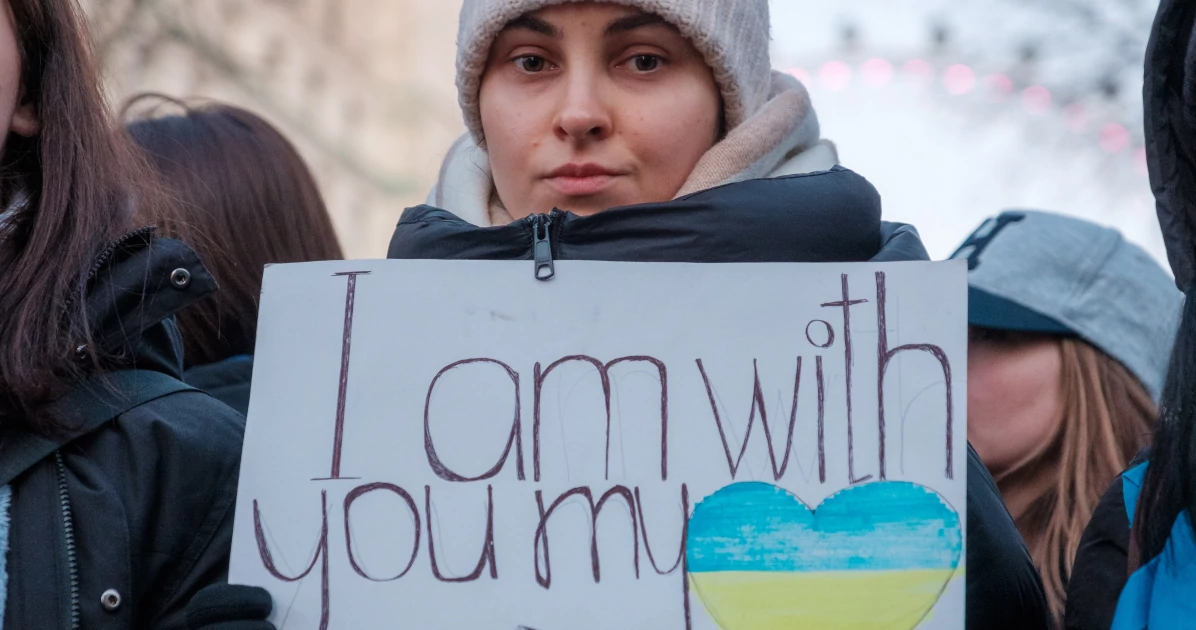 I am with
you my